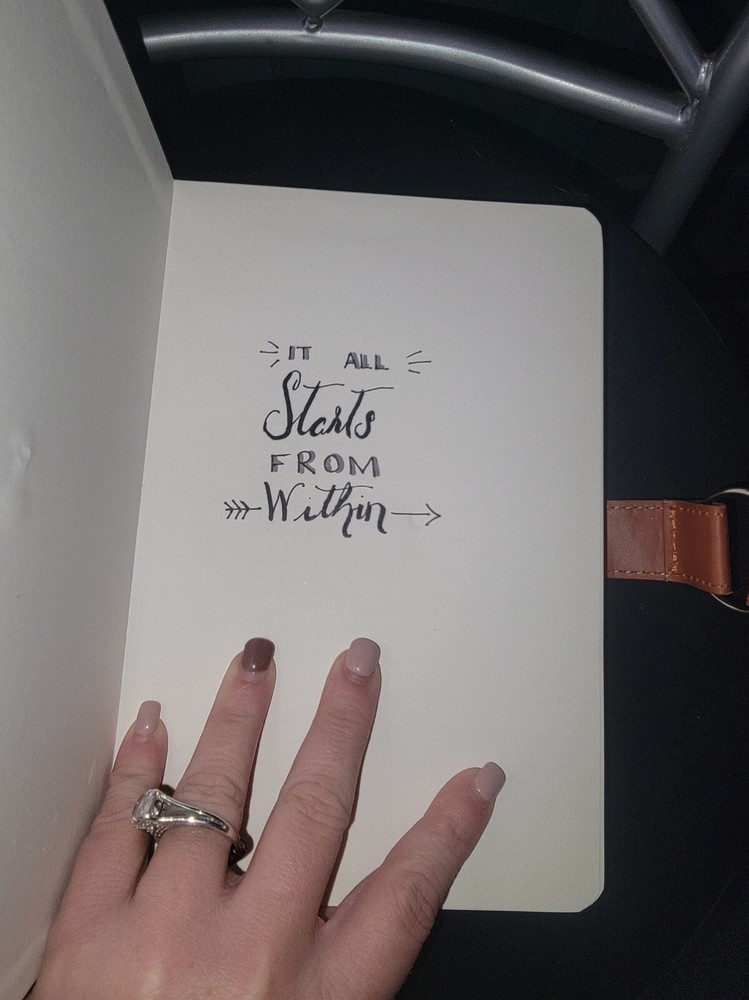 IT ALL
Starts
FROM
Within